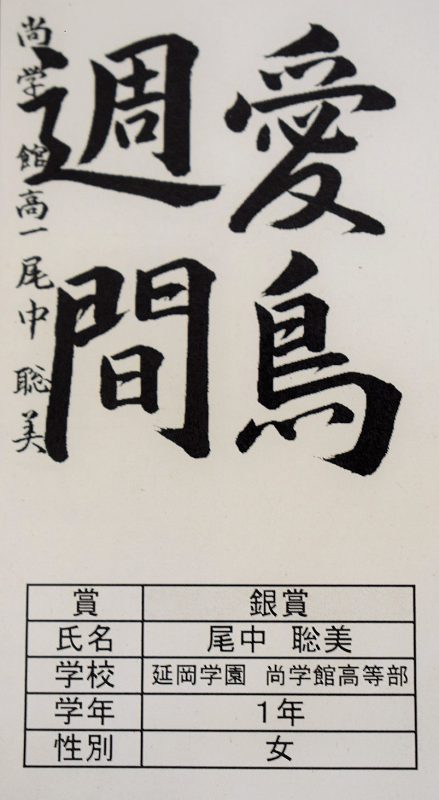 愛鳥
週間
尚学館高一尾中聡美
賞 銀賞
氏名 尾中 聡美
学校 延岡学園 尚学館高等部
学年 1年
性別 女